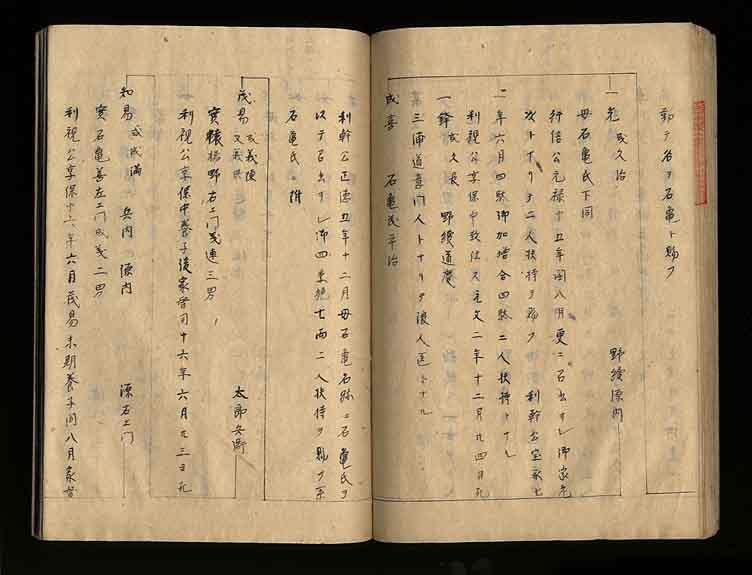 勤テ谷ヲ石亀ト賜フ
一光 或久治 野續源内
母石亀氏下同
行信公元禄十五年閏八月更ニ召出サレ御家先
次トナリテ二人扶持ヲ賜フ 利幹公宝永七
年六月四駄御加増合四駄二人扶持トナル
利視公享保中致仕ス元文二年十二月廿四日死
一鋒 或久長 野續道慶
三浦道喜門人トナリテ浪人医トナル
成喜 石亀氏平治
利幹公正徳丑年十二月母石亀名跡ニ石亀氏ヲ
以テ召出サレ御四季施七両二人扶持ヲ賜フ系
石亀氏ニ附
茂易 或義陳 又義供 太郎兵衛
實轆轤野右エ門茂連三男
利視公享保中養子後家督同十六年六月廿三日死
知易 或成満 兵内 源内 源右エ門
實石亀善左エ門成義二男
利視公享保十六年六月茂易末期養子同八月家督